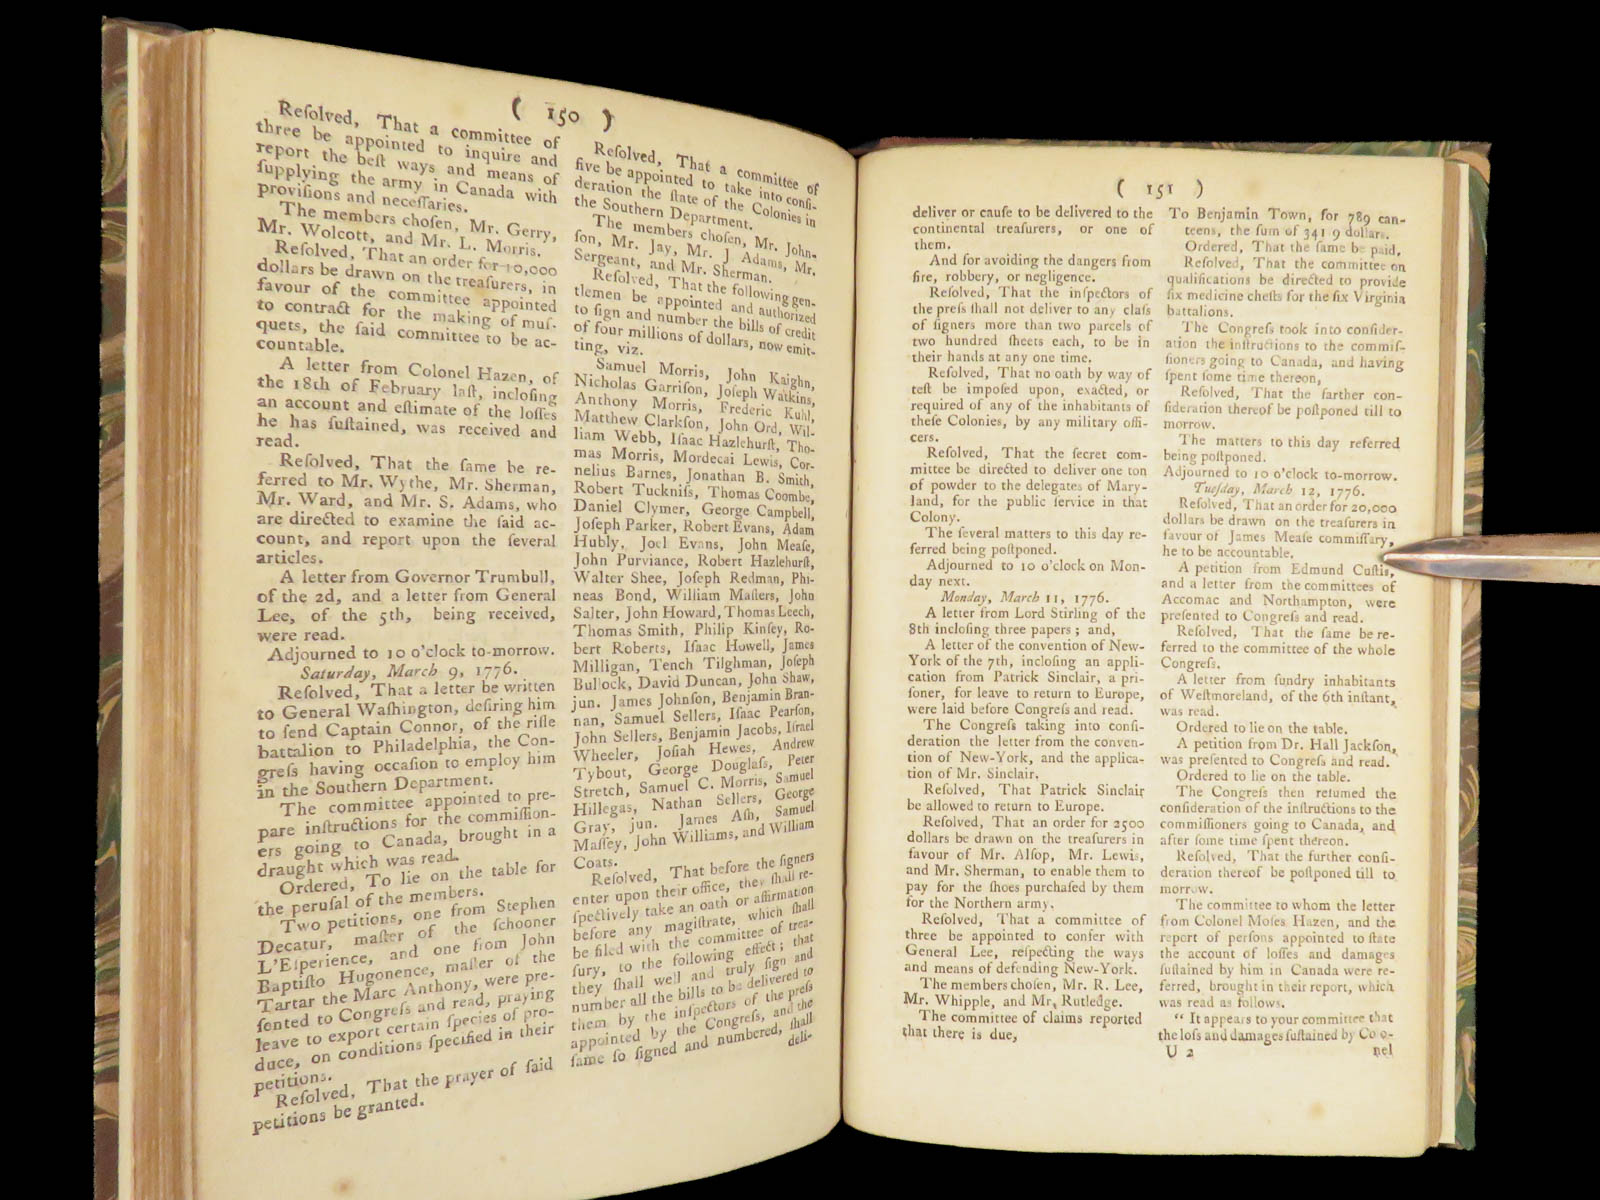 ( 150 )
Reſolved, That a committee of
three be appointed to inquire and
report the beſt ways and means of
ſupplying the army in Canada with
proviſions and neceſſaries.
The members choſen, Mr. Gerry,
Mr. Wolcott, and Mr. L. Morris.
Reſolved, That an order for 10,000
dollars be drawn on the treaſurers, in
favour of the committee appointed
to contract for the making of muſ-
quets, the ſaid committee to be ac-
countable.
A letter from Colonel Hazen, of
the 18th of February laſt, incloſing
an account and eſtimate of the loſſes
he has ſuſtained, was received and
read.
Reſolved, That the ſame be re-
ferred to Mr. Wythe, Mr. Sherman,
Mr. Ward, and Mr. S. Adams, who
are directed to examine the ſaid ac-
count, and report upon the ſeveral
articles.
A letter from Governor Trumbull,
of the 2d, and a letter from General
Lee, of the 5th, being received,
were read.
Adjourned to 10 o'clock to-morrow.
Saturday, March 9, 1776.
Reſolved, That a letter be written
to General Waſhington, deſiring him
to ſend Captain Connor, of the rifle
battalion to Philadelphia, the Con-
greſs having occaſion to employ him
in the Southern Department.
The committee appointed to pre-
pare inſtructions for the commiſſion-
ers going to Canada, brought in a
draught which was read.
Ordered, To lie on the table for
the peruſal of the members.
Two petitions, one from Stephen
Decatur, maſter of the ſchooner
L'Eſperience, and one from John
Baptiſto Hugonence, maſter of the
Tartar the Marc Anthony, were pre-
ſented to Congreſs and read, praying
leave to export certain ſpecies of pro-
duce, on conditions ſpecified in their
petitions.
Reſolved, That the prayer of ſaid
petitions be granted.
Reſolved, That a committee of
five be appointed to take into conſi-
deration the ſtate of the Colonies in
the Southern Department.
The members choſen, Mr. John-
ſon, Mr. Jay, Mr. J Adams, Mr.
Sergeant, and Mr. Sherman.
Reſolved, That the following gen-
tlemen be appointed and authorized
to ſign and number the bills of credit
of four millions of dollars, now emit-
ting, viz.
Samuel Morris, John Kaighn,
Nicholas Garriſon, Joſeph Watkins,
Anthony Morris, Frederic Kuhl,
Matthew Clarkſon, John Ord, Wil-
liam Webb, Iſaac Hazlehurſt, Tho-
mas Morris, Mordecai Lewis, Cor-
nelius Barnes, Jonathan B. Smith,
Robert Tuckniſs, Thomas Coombe,
Daniel Clymer, George Campbell,
Joſeph Parker, Robert Evans, Adam
Hubly, Joel Evans, John Meaſe,
John Purviance, Robert Hazlehurſt,
Walter Shee, Joſeph Redman, Phi-
neas Bond, William Maſters, John
Salter, John Howard, Thomas Leech,
Thomas Smith, Philip Kinſey, Ro-
bert Roberts, Iſaac Howell, James
Milligan, Tench Tilghman, Joſeph
Bullock, David Duncan, John Shaw,
jun. James Johnſon, Benjamin Bran-
nan, Samuel Sellers, Iſaac Pearſon,
John Sellers, Benjamin Jacobs, Iſrael
Wheeler, Joſiah Hewes, Andrew
Tybout, George Douglaſs, Peter
Stretch, Samuel C. Morris, Samuel
Hillegas, Nathan Sellers, George
Gray, jun. James Aſh, Samuel
Maſſey, John Williams, and William
Coats.
Reſolved, That before the ſigners
enter upon their office, they ſhall re-
ſpectively take an oath or affirmation
before any magiſtrate, which ſhall
be filed with the committee of trea-
ſury, to the following effect; that
they ſhall well and truly ſign and
number all the bills to be delivered to
them by the inſpectors of the preſs
appointed by the Congreſs, and the
ſame ſo ſigned and numbered, ſhall
deli-
( 151 )
deliver or cauſe to be delivered to the
continental treaſurers, or one of
them.
And for avoiding the dangers from
fire, robbery, or negligence.
Reſolved, That the inſpectors of
the preſs ſhall not deliver to any claſs
of ſigners more than two parcels of
two hundred ſheets each, to be in
their hands at any one time.
Reſolved, That no oath by way of
teſt be impoſed upon, exacted, or
required of any of the inhabitants of
theſe Colonies, by any military offi-
cers.
Reſolved, That the ſecret com-
mittee be directed to deliver one ton
of powder to the delegates of Mary-
land, for the public ſervice in that
Colony.
The ſeveral matters to this day re-
ferred being poſtponed.
Adjourned to 10 o'clock on Mon-
day next.
Monday, March 11, 1776.
A letter from Lord Stirling of the
8th incloſing three papers; and,
A letter of the convention of New-
York of the 7th, incloſing an appli-
cation from Patrick Sinclair, a pri-
ſoner, for leave to return to Europe,
were laid before Congreſs and read.
The Congreſs taking into conſi-
deration the letter from the conven-
tion of New-York, and the applica-
tion of Mr. Sinclair,
Reſolved, That Patrick Sinclair
be allowed to return to Europe.
Reſolved, That an order for 2500
dollars be drawn on the treaſurers in
favour of Mr. Alſop, Mr. Lewis,
and Mr. Sherman, to enable them to
pay for the ſhoes purchaſed by them
for the Northern army.
Reſolved, That a committee of
three be appointed to confer with
General Lee, reſpecting the ways
and means of defending New-York.
The members choſen, Mr. R. Lee,
Mr. Whipple, and Mr. Rutledge.
The committee of claims reported
that there is due,
To Benjamin Town, for 789 can-
teens, the ſum of 341 9 dollars.
Ordered, That the ſame be paid.
Reſolved, That the committee on
qualifications be directed to provide
ſix medicine cheſts for the ſix Virginia
battalions.
The Congreſs took into conſider-
ation the inſtructions to the commiſ-
ſioners going to Canada, and having
ſpent ſome time thereon,
Reſolved, That the farther con-
ſideration thereof be poſtponed till to
morrow.
The matters to this day referred
being poſtponed.
Adjourned to 10 o'clock to-morrow.
Tueſday, March 12, 1776.
Reſolved, That an order for 20,000
dollars be drawn on the treaſurers in
favour of James Meaſe commiſſary,
he to be accountable.
A petition from Edmund Cuſtis,
and a letter from the committees of
Accomac and Northampton, were
preſented to Congreſs and read.
Reſolved, That the ſame be re-
ferred to the committee of the whole
Congreſs.
A letter from ſundry inhabitants
of Weſtmoreland, of the 6th inſtant,
was read.
Ordered to lie on the table.
A petition from Dr. Hall Jackſon,
was preſented to Congreſs and read.
Ordered to lie on the table.
The Congreſs then reſumed the
conſideration of the inſtructions to the
commiſſioners going to Canada, and
after ſome time ſpent thereon.
Reſolved, That the further conſi-
deration thereof be poſtponed till to
morrow.
The committee to whom the letter
from Colonel Moſes Hazen, and the
report of perſons appointed to ſtate
the account of loſſes and damages
ſuſtained by him in Canada were re-
ferred, brought in their report, which
was read as follows.
“ It appears to your committee that
the loſs and damages ſuſtained by Colo-
U 2 nel